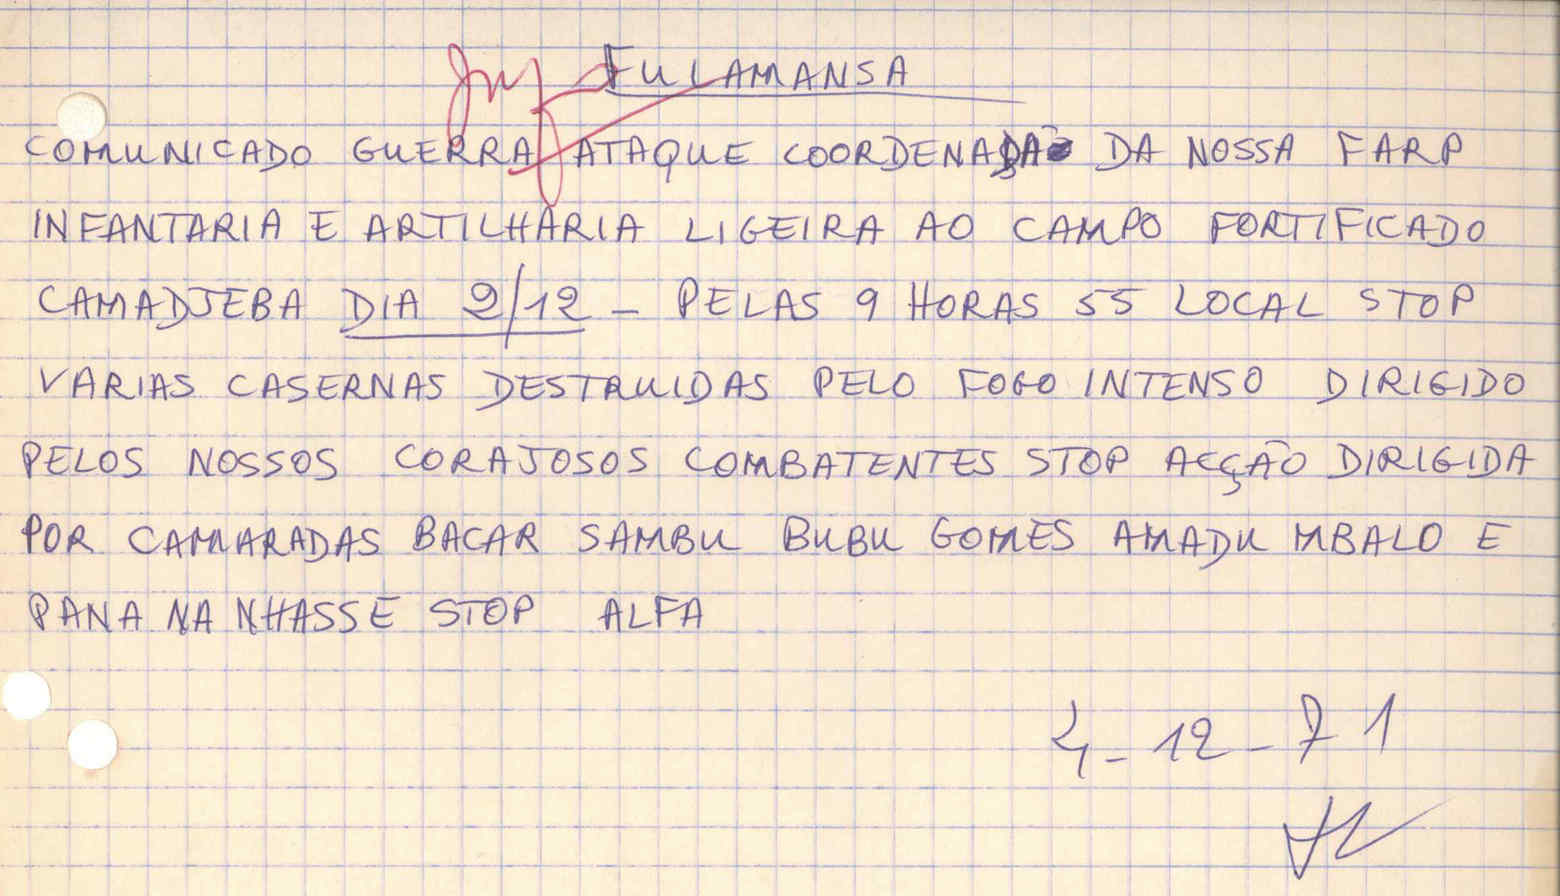 FULAMANSA
COMUNICADO GUERRA ATAQUE COORDENADA DA NOSSA FARP
INFANTARIA E ARTILHARIA LIGEIRA AO CAMPO FORTIFICADO
CAMADJEBA DIA 2/12 - PELAS 9 HORAS 55 LOCAL STOP
VARIAS CASERNAS DESTRUIDAS PELO FOGO INTENSO DIRIGIDO
PELOS NOSSOS CORAJOSOS COMBATENTES STOP ACÇÃO DIRIGIDA
POR CAMARADAS BACAR SAMBU BUBU GOMES AMADU MBALO E
PANA NA NHASSE STOP ALFA
4-12-71